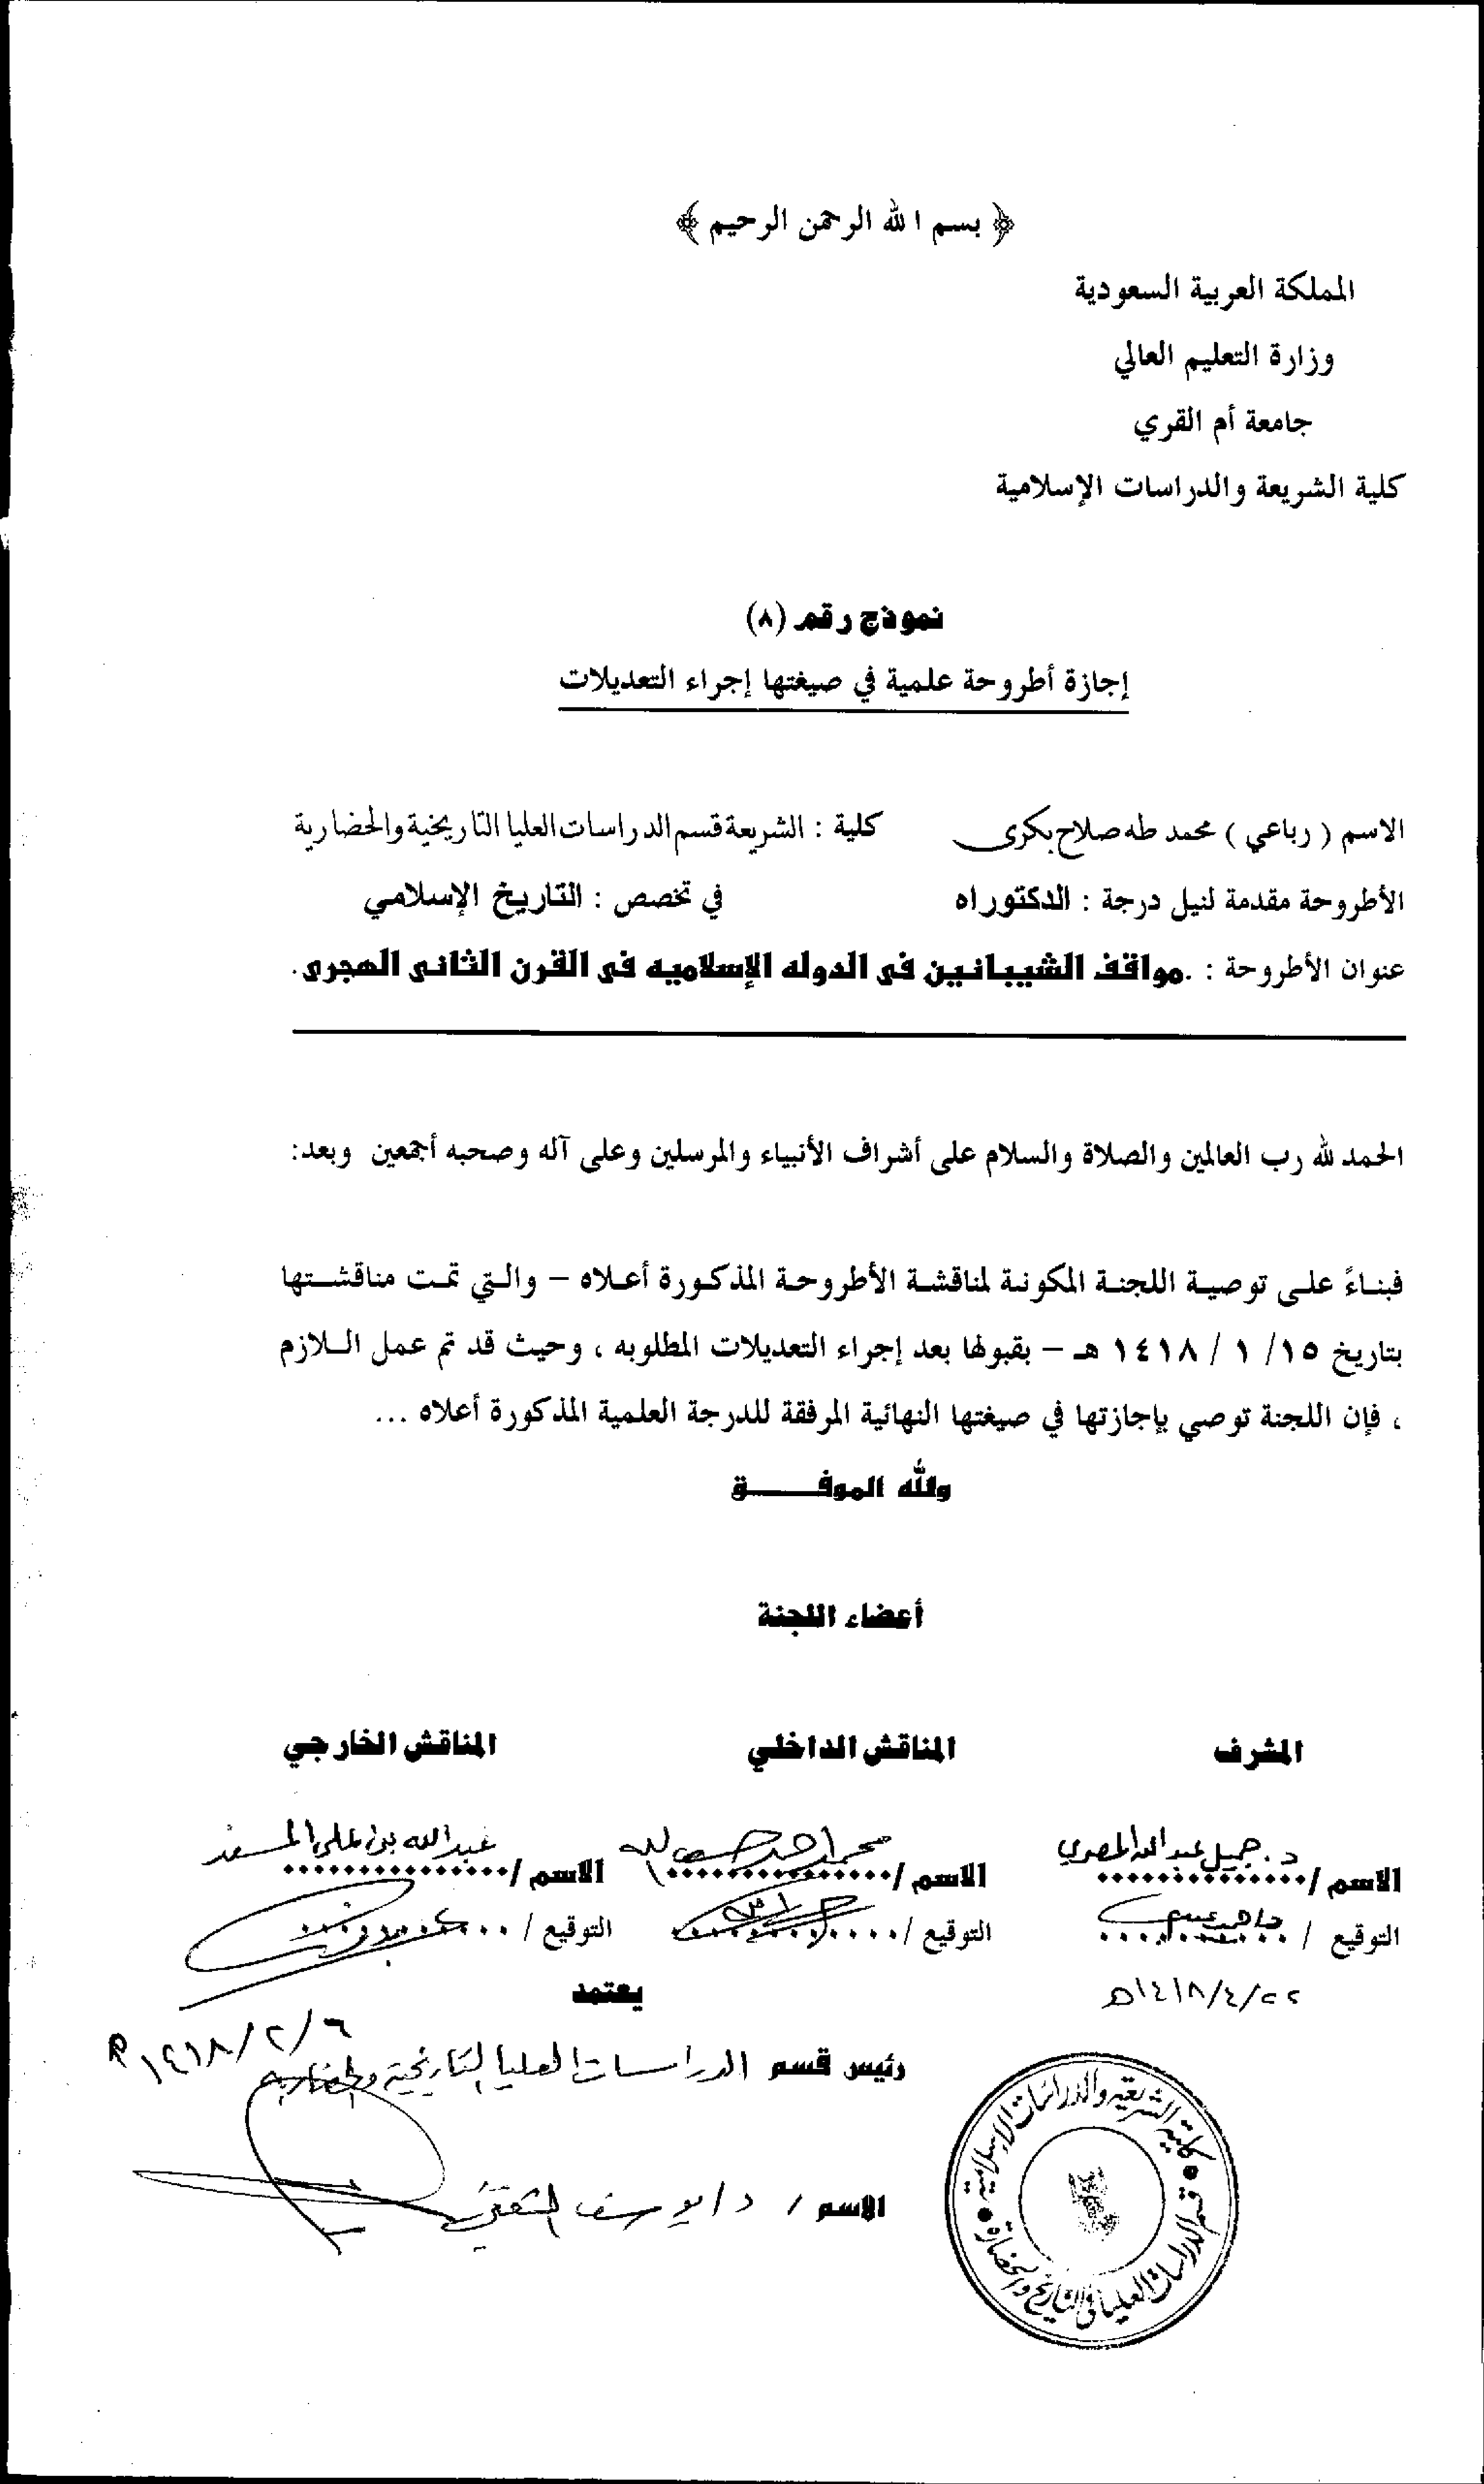 ﴿ بسم الله الرحمن الرحيم ﴾
المملكة العربية السعودية
وزارة التعليم العالي
جامعة أم القري
كلية الشريعة والدراسات الإسلامية
نموذج رقم (٨)
إجازة أطروحة علمية في صيغتها إجراء التعديلات
الاسم ( رباعي ) محمد طه صلاح بكرى كلية : الشريعة قسم الدراسات العليا التاريخية والحضارية
الأطروحة مقدمة لنيل درجة : الدكتوراه في تخصص : التاريخ الإسلامي
عنوان الأطروحة : .مواقف الشيبانين فى الدوله الإسلاميه فى القرن الثانى الهجرى.
الحمد لله رب العالمين والصلاة والسلام على أشراف الأنبياء والمرسلين وعلى آله وصحبه أجمعين وبعد:
فبناءً على توصية اللجنة المكونة لمناقشة الأطروحة المذكورة أعلاه – والتي تمت مناقشتها
بتاريخ ١٥/ ١ / ١٤١٨ هـ – بقبولها بعد إجراء التعديلات المطلوبه ، وحيث قد تم عمل اللازم
، فإن اللجنة توصي بإجازتها في صيغتها النهائية المرفقة للدرجة العلمية المذكورة أعلاه ...
والله الموفـــــق
أعضاء اللجنة
المشرف المناقش الداخلي المناقش الخارجي
الاسم / د. جميل عبدالله المصري الاسم / محمد أحمد حسب الله الاسم / عبدالله بن علي المسند
التوقيع / التوقيع / التوقيع /
١٤١٨/٤/٢٢هـ
يعتمد
١٤١٨/٢/٦هـ
رئيس قسم الدراسات العليا التاريخية والحضارية
الاسم / د/ يوسف الثقفي
كلية الشريعة والدراسات الإسلامية
قسم الدراسات العليا في التاريخ والحضارة